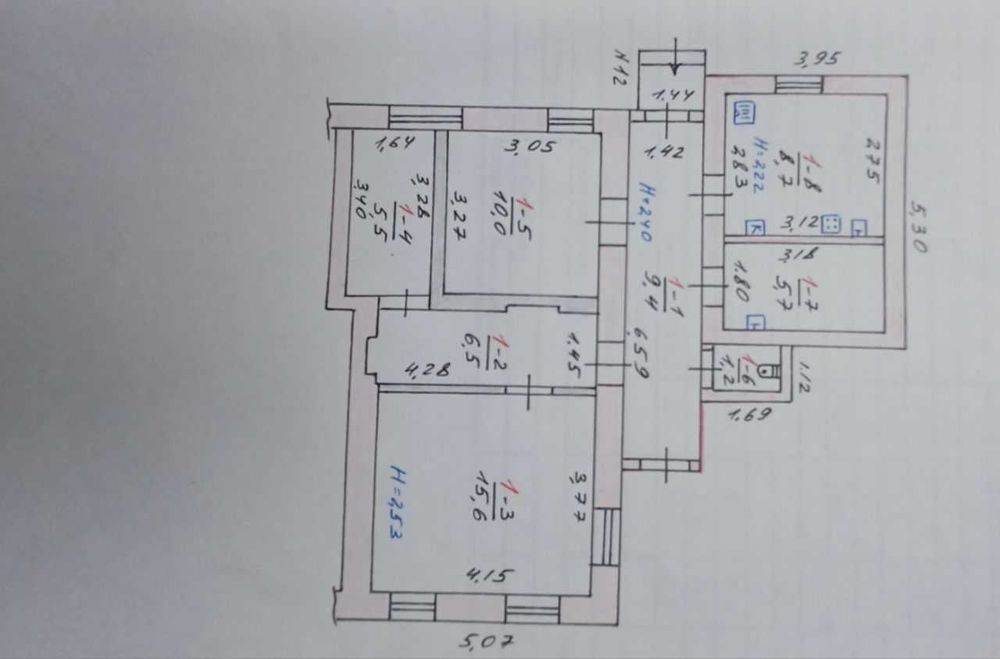 3,95
N12
1.44
1,42
H=240
1-1
9,4
6,59
1-8
8,7
H=222
283
275
3,12
K
5,30
3,18
1-7
5,7
1.80
1-6
1,2
1.12
1.69
1,64
3,28
1-4
5,5
3,40
3,05
3,27
1-5
10,0
1-2
6,5
4,28
1.45
1-3
15,6
H=2,53
3,77
4,15
5,07